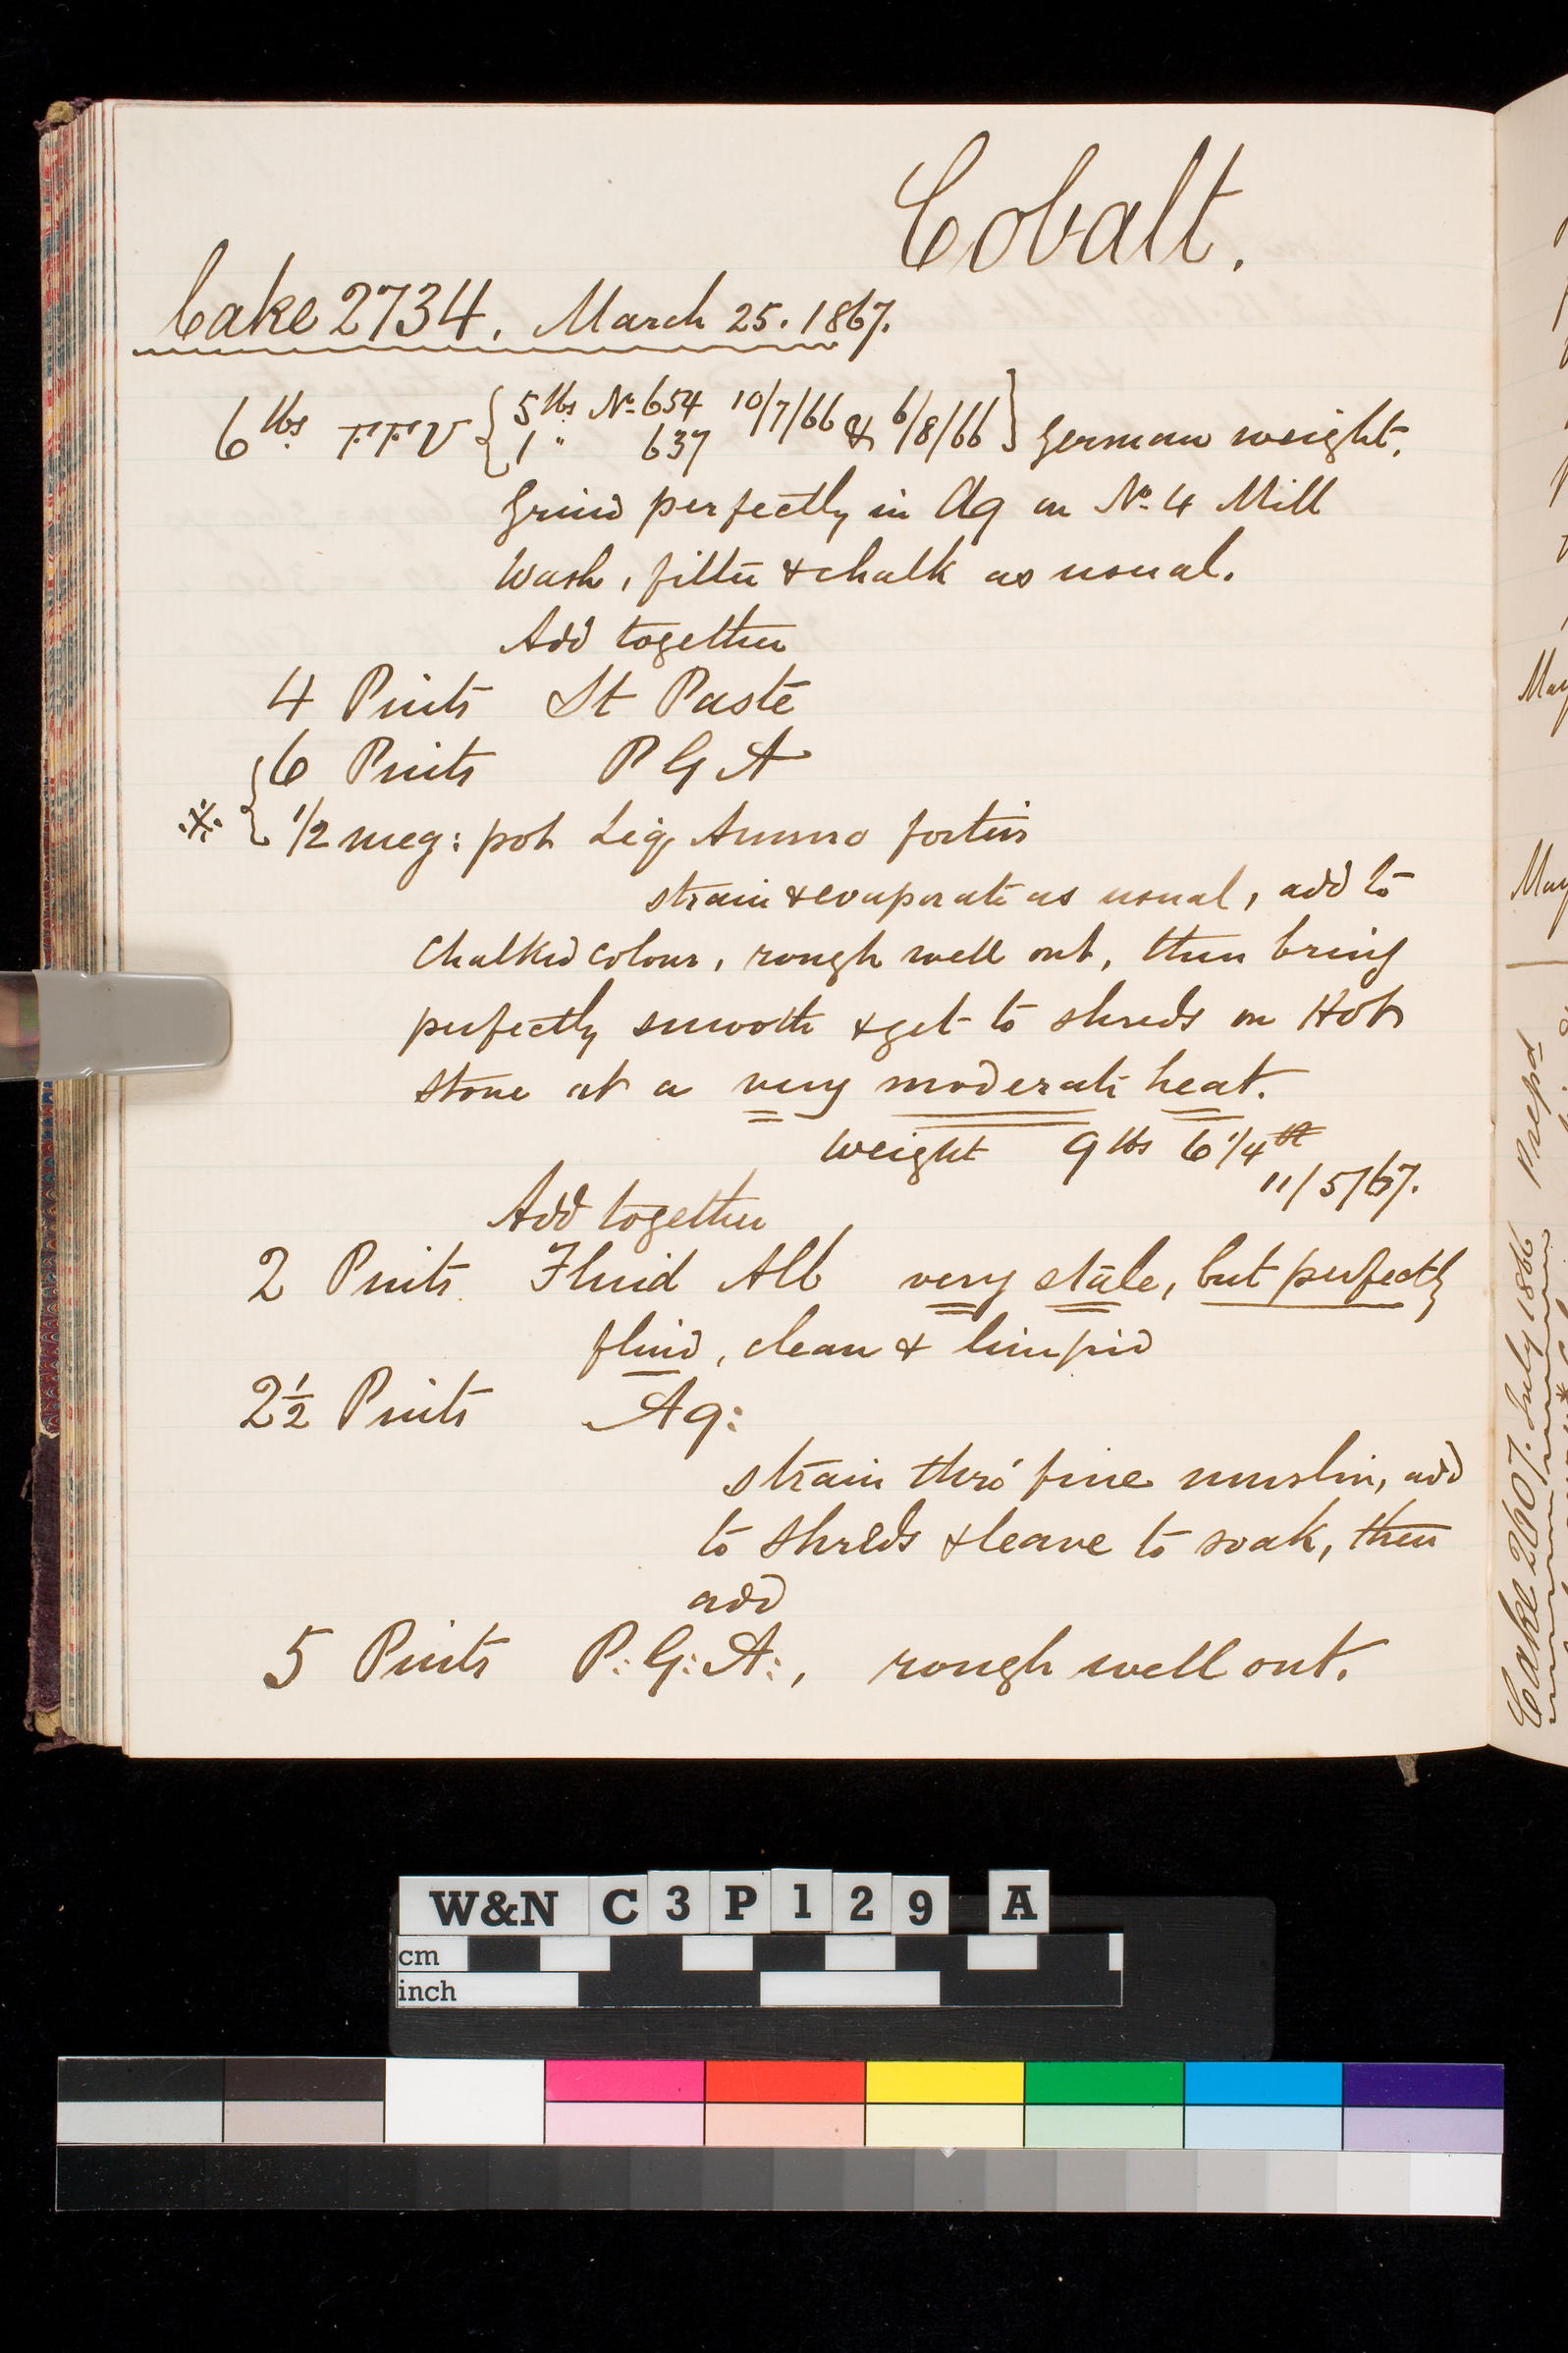 Cobalt.
Cake 2734. March 25. 1867.
6 lbs. FFV { 5 lbs. No. 654 10/7/66 & 6/8/66 } German weight.
1 " 637
Grind perfectly in Aq on No. 4 Mill
Wash, filter & chalk as usual.
Add together
4 Pints St Paste
6 Pints P G A
※ { 1/2 meg: pot Liq Ammo fortis
strain & evaporate as usual, add to
Chalked colour, rough well out, then bring
perfectly smooth & get to shreds on Hot
stone at a very moderate heat.
Weight 9 lbs 6 1/4
11/5/67.
Add together
2 Pints Fluid Alb very stale, but perfectly
fluid, clean & limpid
2 1/2 Pints Aq:
strain thro' fine muslin, add
to shreds & leave to soak, then
add
5 Pints P: G: A:, rough well out.
May
May
Prepd
Cake 2607. July 1866
W&N C3P129 A
cm
inch